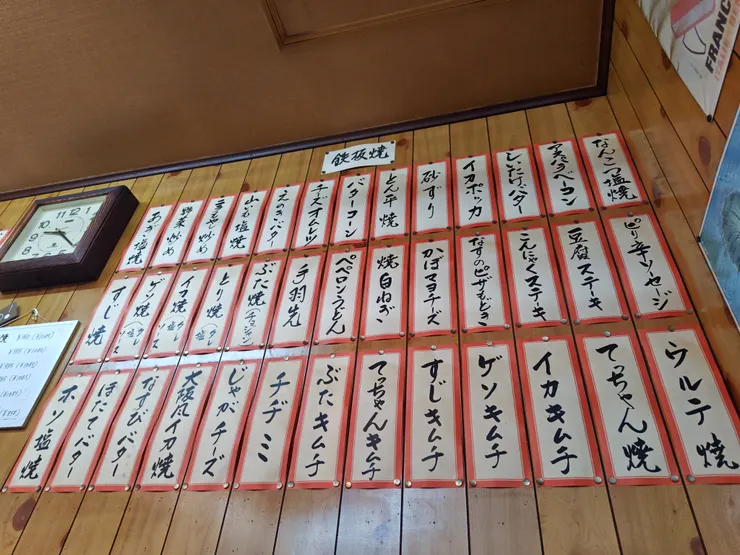 鉄板焼
なんこつ塩焼
ベーコン
しいたけバター
イカポッカ
砂ずり
とん平焼
バターコーン
チーズオムレツ
えのきバター
山いも塩焼
もやし炒め
野菜炒め
あぎ塩焼
ピリ辛ソーセージ
豆腐ステーキ
こんにゃくステーキ
なすのピザもどき
かぼマヨチーズ
焼白ねぎ
ペペロンうどん
手羽先
ぶた焼
とり焼
イカ焼
ゲソ焼
すじ焼
ウルテ焼
てっちゃん焼
イカキムチ
ゲソキムチ
すじキムチ
てっちゃんキムチ
ぶたキムチ
チヂミ
じゃがチーズ
大阪風イカ焼
なすびバター
ほたてバター
ホソ塩焼
FRANC